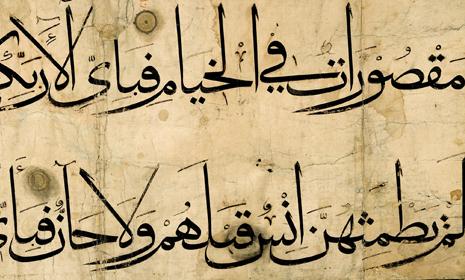 مَقْصُورَات في الخيام فباىّ آلاء ربّك
لم يَطْمِثْهُنّ انسٌ قبلهُمْ ولا جآنٌّ فباىّ